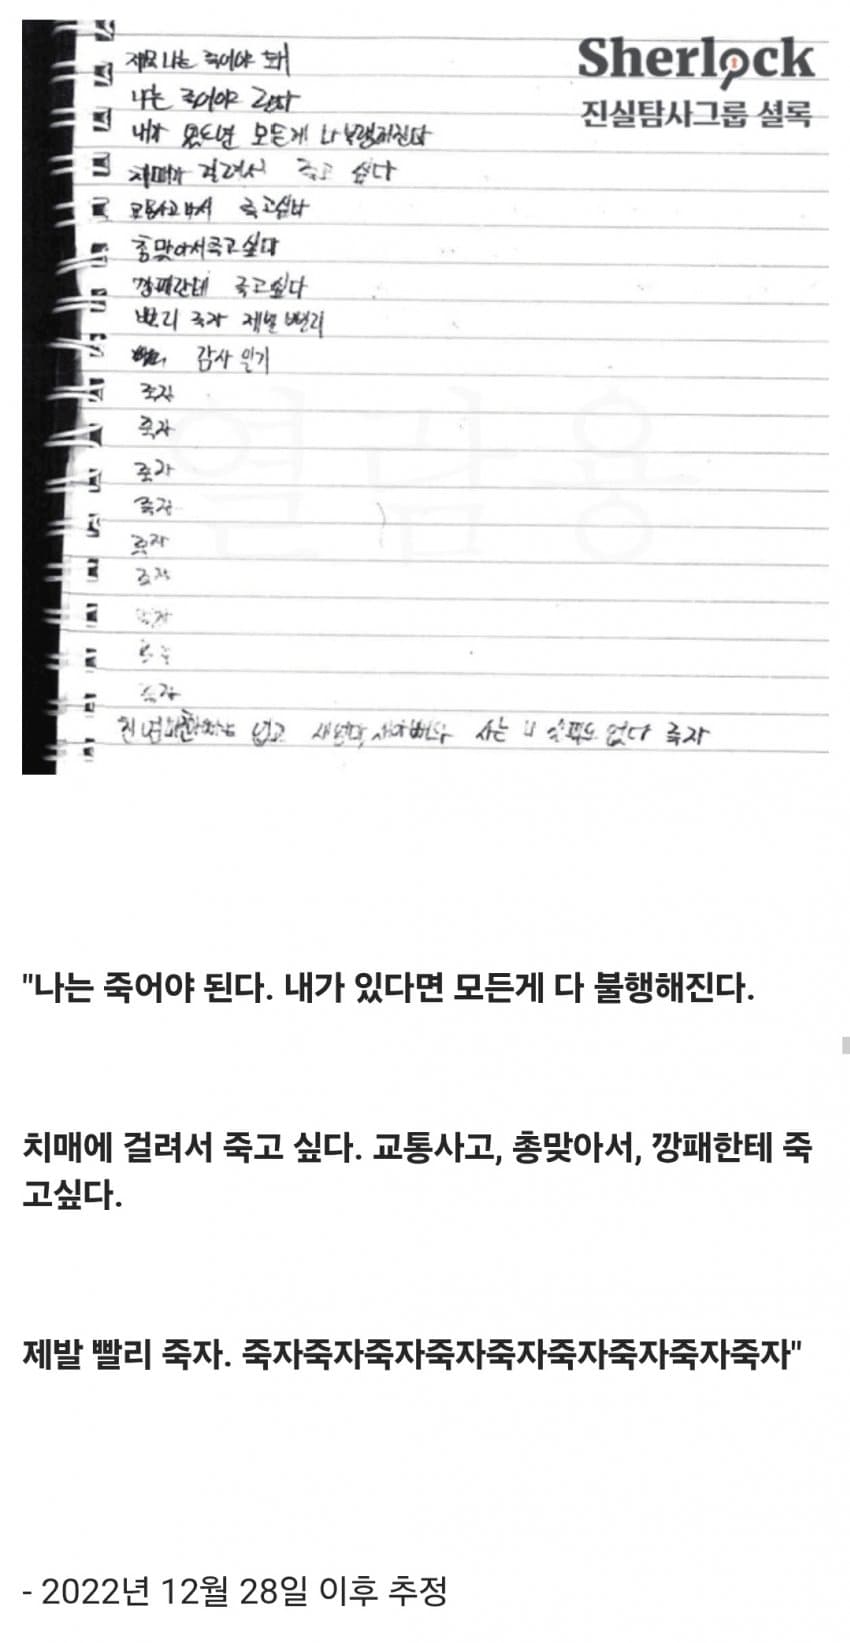 Sherlock
진실탐사그룹 셜록
제발 나는 죽어야 돼
나는 죽어야 된다
내가 있다면 모든게 다 불행해진다
치매에 걸려서 죽고 싶다
교통사고나서 죽고싶다
총맞아서죽고싶다
깡패한테 죽고싶다
빨리 죽자 제발 빨리
감사 일기
죽자
죽자
죽자
죽자
죽자
죽자
죽자
죽자
없고 사는 없다 죽자
열람용
"나는 죽어야 된다. 내가 있다면 모든게 다 불행해진다.
치매에 걸려서 죽고 싶다. 교통사고, 총맞아서, 깡패한테 죽
고싶다.
제발 빨리 죽자. 죽자죽자죽자죽자죽자죽자죽자죽자죽자"
- 2022년 12월 28일 이후 추정